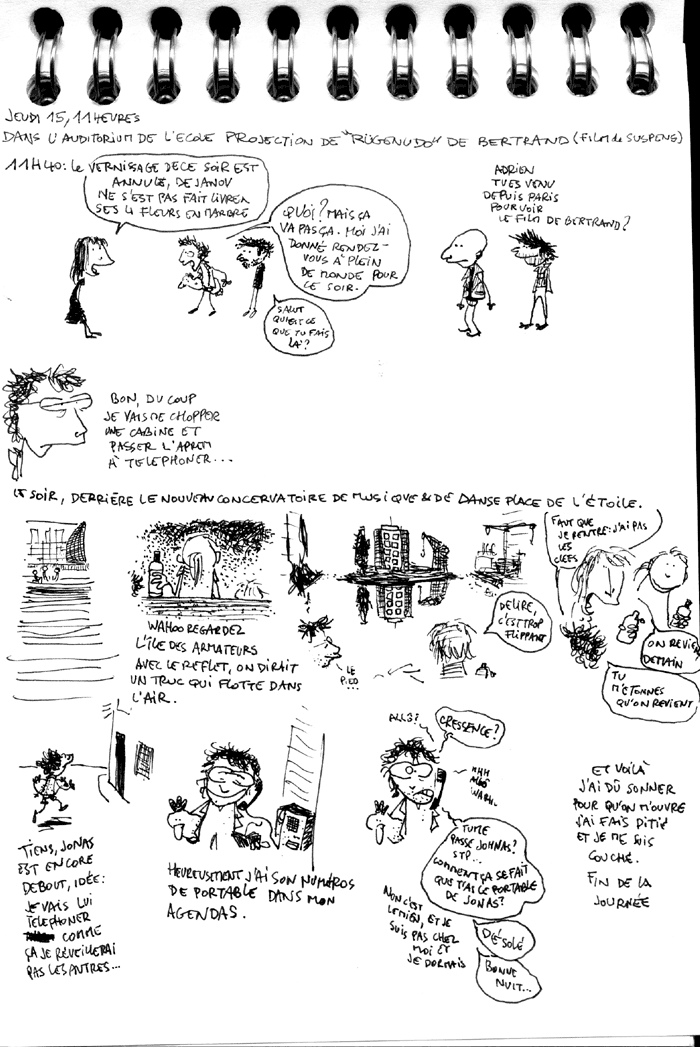 JEUDI 15, 11 HEURES
DANS L'AUDITORIUM DE L'ECOLE PROJECTION DE "RÜGENUDO" DE BERTRAND (FILM de SUSPENS)
11H40: Le VERNISSAGE DE CE SOIR EST
ANNULÉ, DEJANOV
NE S'EST PAS FAIT LIVRER
SES 4 FLEURS EN MARBRE
QUOI? MAIS ÇA
VA PAS ÇA. MOI J'AI
DONNÉ RENDEZ-
VOUS À PLEIN
DE MONDE POUR
CE SOIR.
SALUT
QU'EST CE
QUE TU FAIS
LÀ?
ADRIEN
TU ES VENU
DEPUIS PARIS
POUR VOIR
LE FILM DE BERTRAND?
BON, DU COUP
JE VAIS ME CHOPPER
UNE CABINE ET
PASSER L'APREM
À TELEPHONER...
LE SOIR, DERRIÈRE LE NOUVEAU CONCERVATOIRE DE MUSIQUE & DE DANSE PLACE DE L'ÉTOILE.
WAHOO REGARDEZ
L'ÎLE DES ARMATEURS
AVEC LE REFLET, ON DIRAIT
UN TRUC QUI FLOTTE DANS
L'AIR.
LE
PIED...
DELIRE,
C'EST TROP
FLIPPANT
FAUT QUE
JE RENTRE: J'AI PAS
LES
CLEES
ON REVIENT
DEMAIN
TU
M'ETONNES
QU'ON REVIENT
TIENS, JONAS
EST ENCORE
DEBOUT, IDÉE:
JE VAIS LUI
TELEPHONER
COMME
ÇA JE RÉVEILLERAI
PAS LES AUTRES...
HEUREUSEMENT J'AI SON NUMÉROS
DE PORTABLE DANS MON
AGENDAS.
ALLO?
CRESSENCE?
HHH
ALLO
WAHH.
TU ME
PASSE JOHNAS?
STP...
COMMENT ÇA SE FAIT
QUE T'AS LE PORTABLE
DE JONAS?
NON C'EST
LE MIEN, ET JE
SUIS PAS CHEZ
MOI ET
JE DORMAIS
DÉSOLÉ
BONNE
NUIT...
ET VOILÀ
J'AI DÛ SONNER
POUR QU'ON M'OUVRE
J'AI FAIS PITIÉ
ET JE ME SUIS
COUCHÉ.
FIN DE LA
JOURNÉE